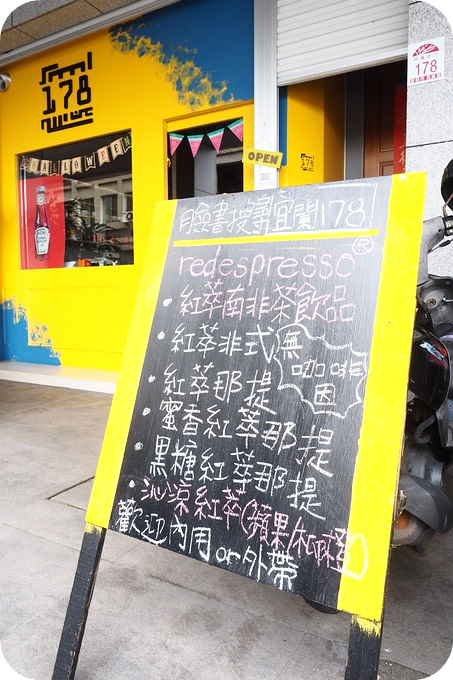 178
HALLOWEEN
OPEN
178
178
臉書搜尋宜蘭178
redespresso®
紅萃南非茶飲品
• 紅萃非式
無
咖啡
因
• 紅萃那提
• 蜜香紅萃那提
• 黑糖紅萃那提
• 沁涼紅萃(蘋果/柳橙)
歡迎內用or外帶